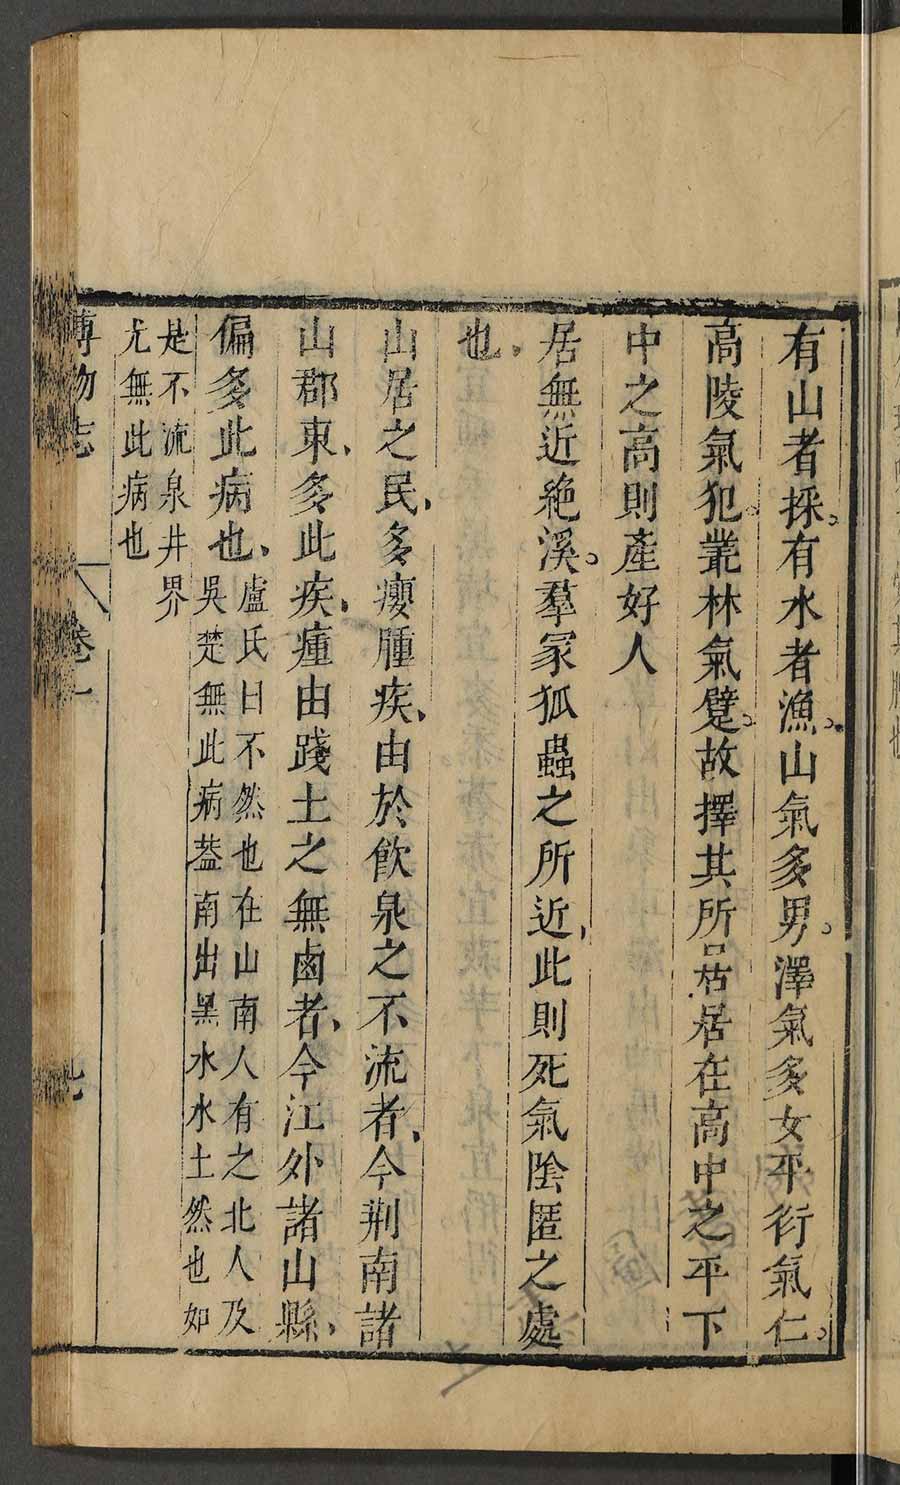 有山者採。有水者漁。山氣多男。澤氣多女平衍氣仁。
高陵氣犯。叢林氣躄。故擇其所居居在高中之平下
中之高則產好人
居無近絶溪。羣冢狐蟲之所近、此則死氣陰匿之處
也、
山居之民、多癭腫疾、由於飲泉之不流者、今荆南諸
山郡東、多此疾、瘇由踐土之無鹵者、今江外諸山縣、
偏多此病也、
盧氏曰不然也在山南人有之北人及
吳楚無此病葢南出黑水水土然也如
是不流泉井界
尤無此病也
博物志
卷一
七